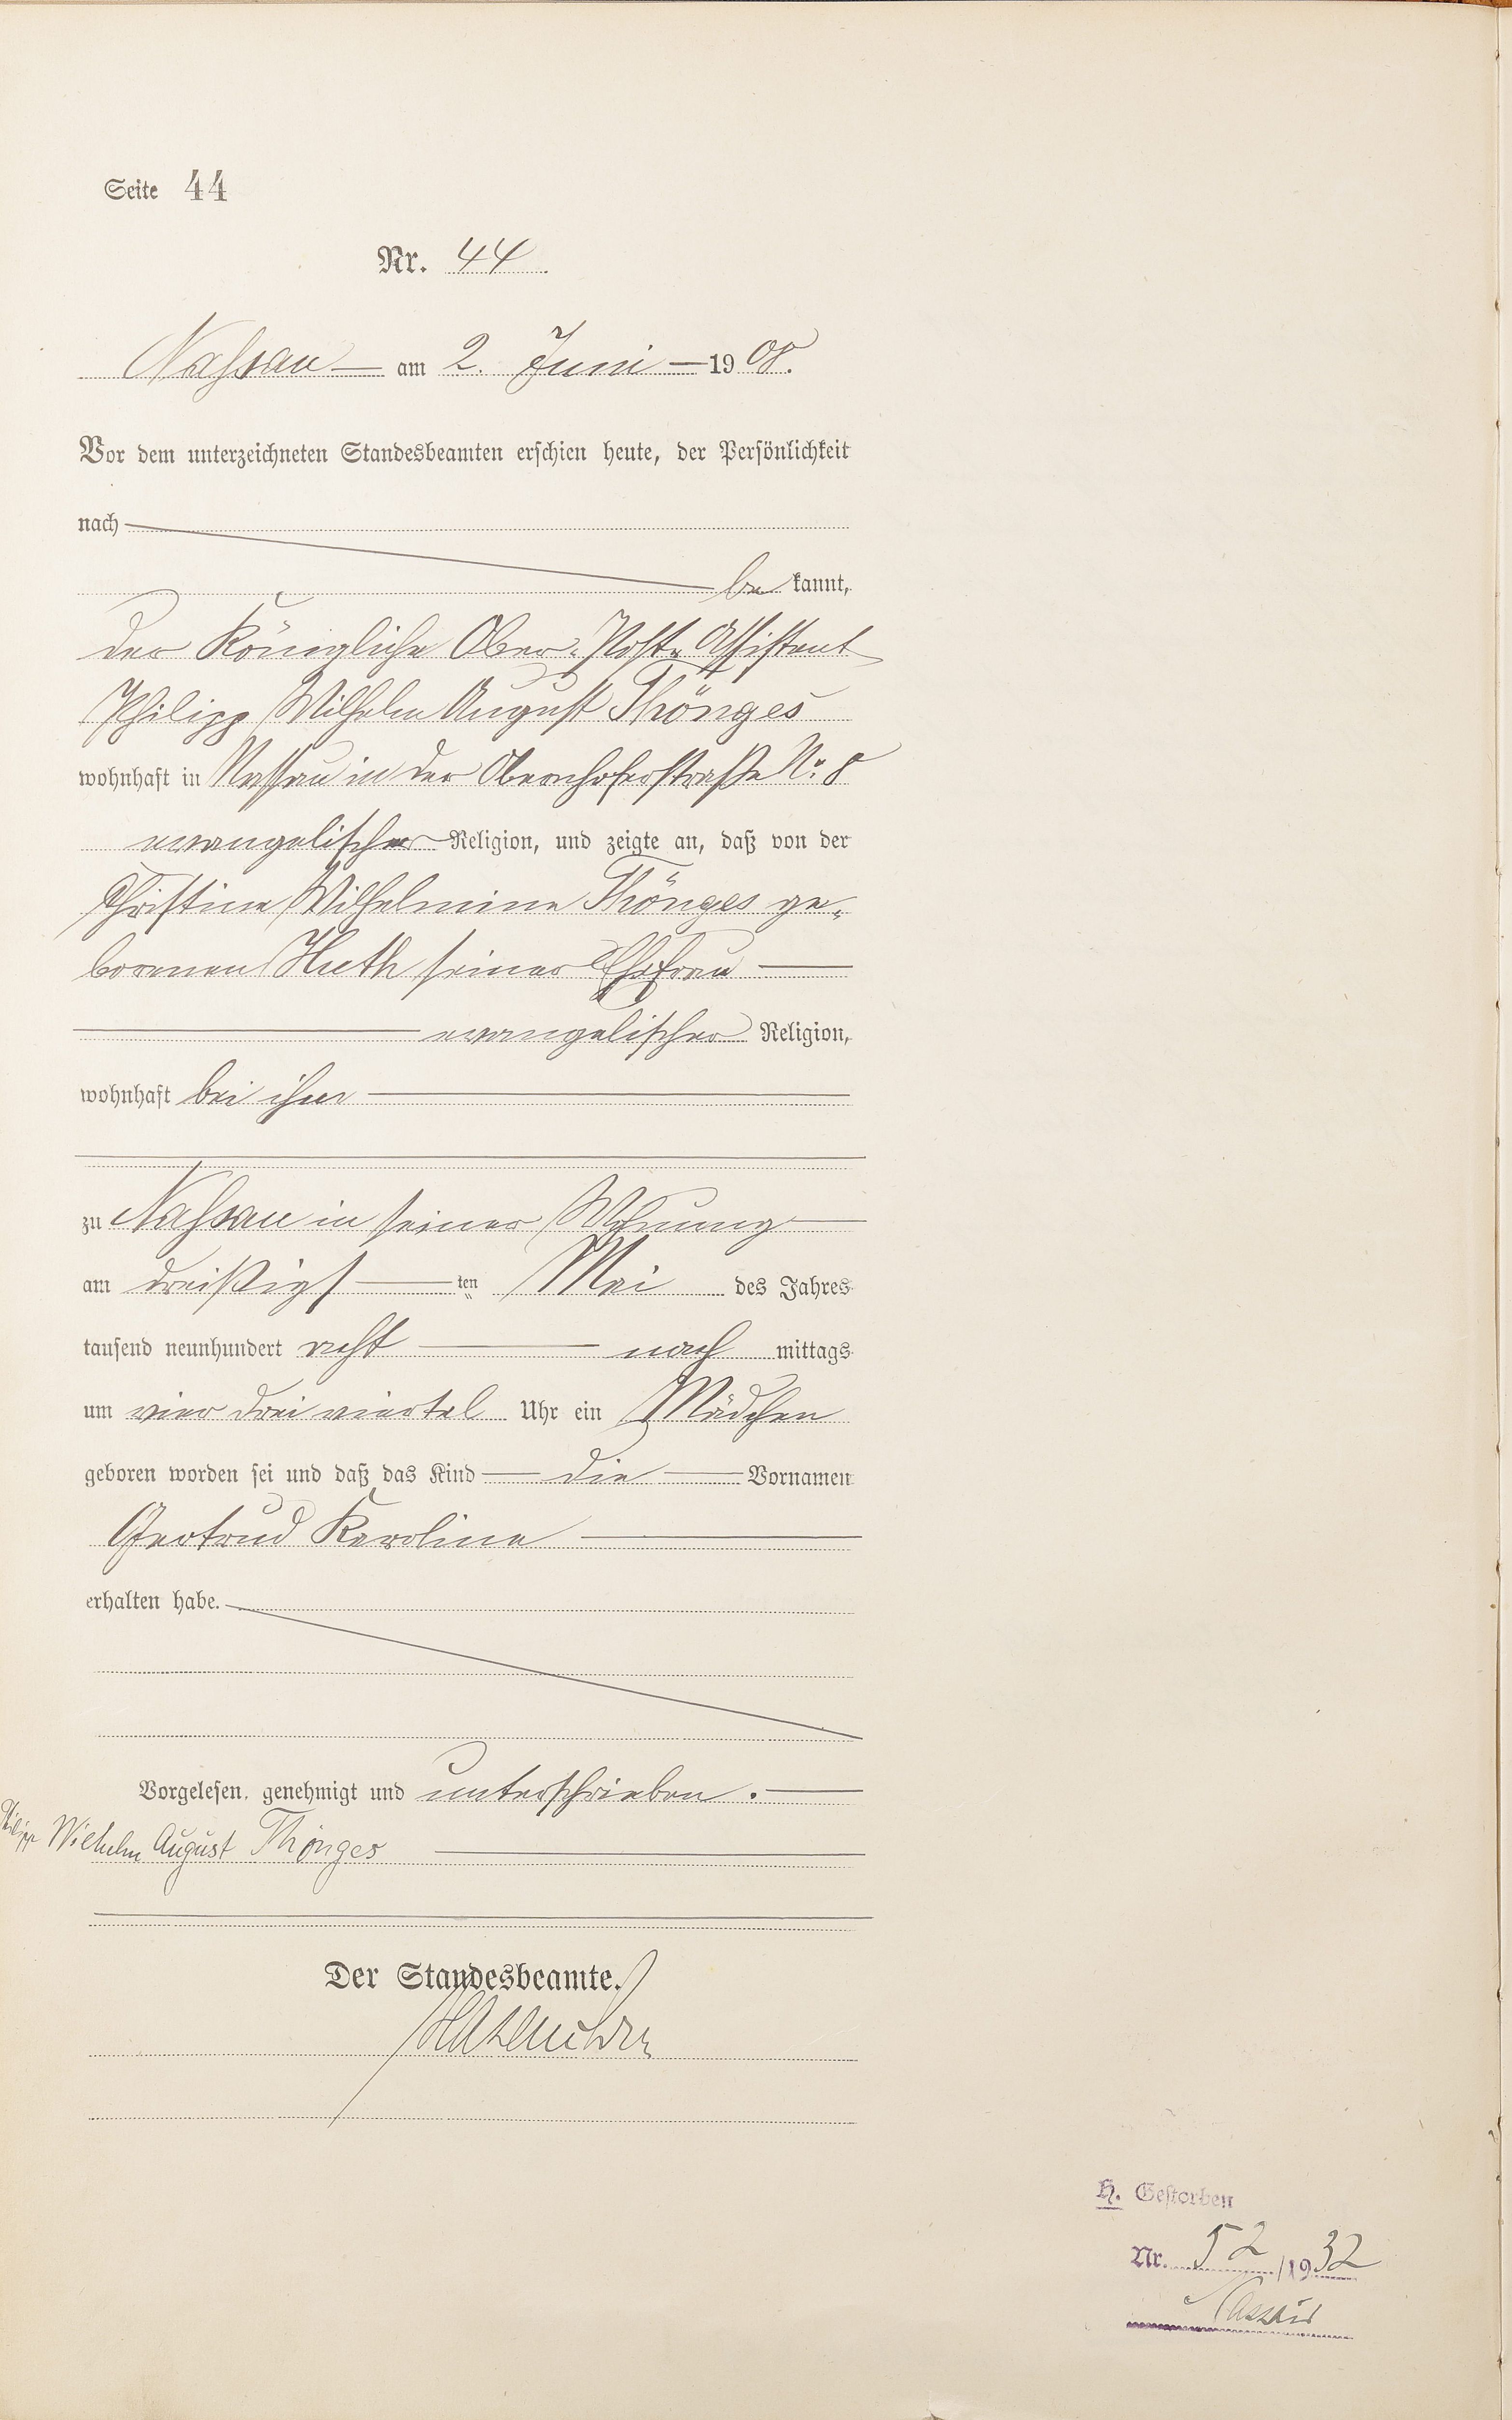 Seite 44
Nr. 44
Nassau — am 2. Juni — 1908.
Vor dem unterzeichneten Standesbeamten erschien heute, der Persönlichkeit
nach
be kannt,
der Königliche Ober-Post-Assistent
Philipp Wilhelm August Thönges
wohnhaft in Nassau in der Obernhoferstraße No. 8
evangelischer Religion, und zeigte an, daß von der
Christine Wilhelmine Thönges ge-
borenen Huth seiner Ehefrau —
evangelischer Religion,
wohnhaft bei ihm —
zu Nassau in seiner Wohnung —
am dreißigs — ten Mai des Jahres
tausend neunhundert acht — nach mittags
um vier drei viertel Uhr ein Mädchen
geboren worden sei und daß das Kind — die — Vornamen
Gertrud Karoline —
erhalten habe.
Vorgelesen, genehmigt und unterschrieben. —
Philipp Wilhelm August Thönges —
Der Standesbeamte.
H. Gestorben
Nr. 52/1932
Nassau